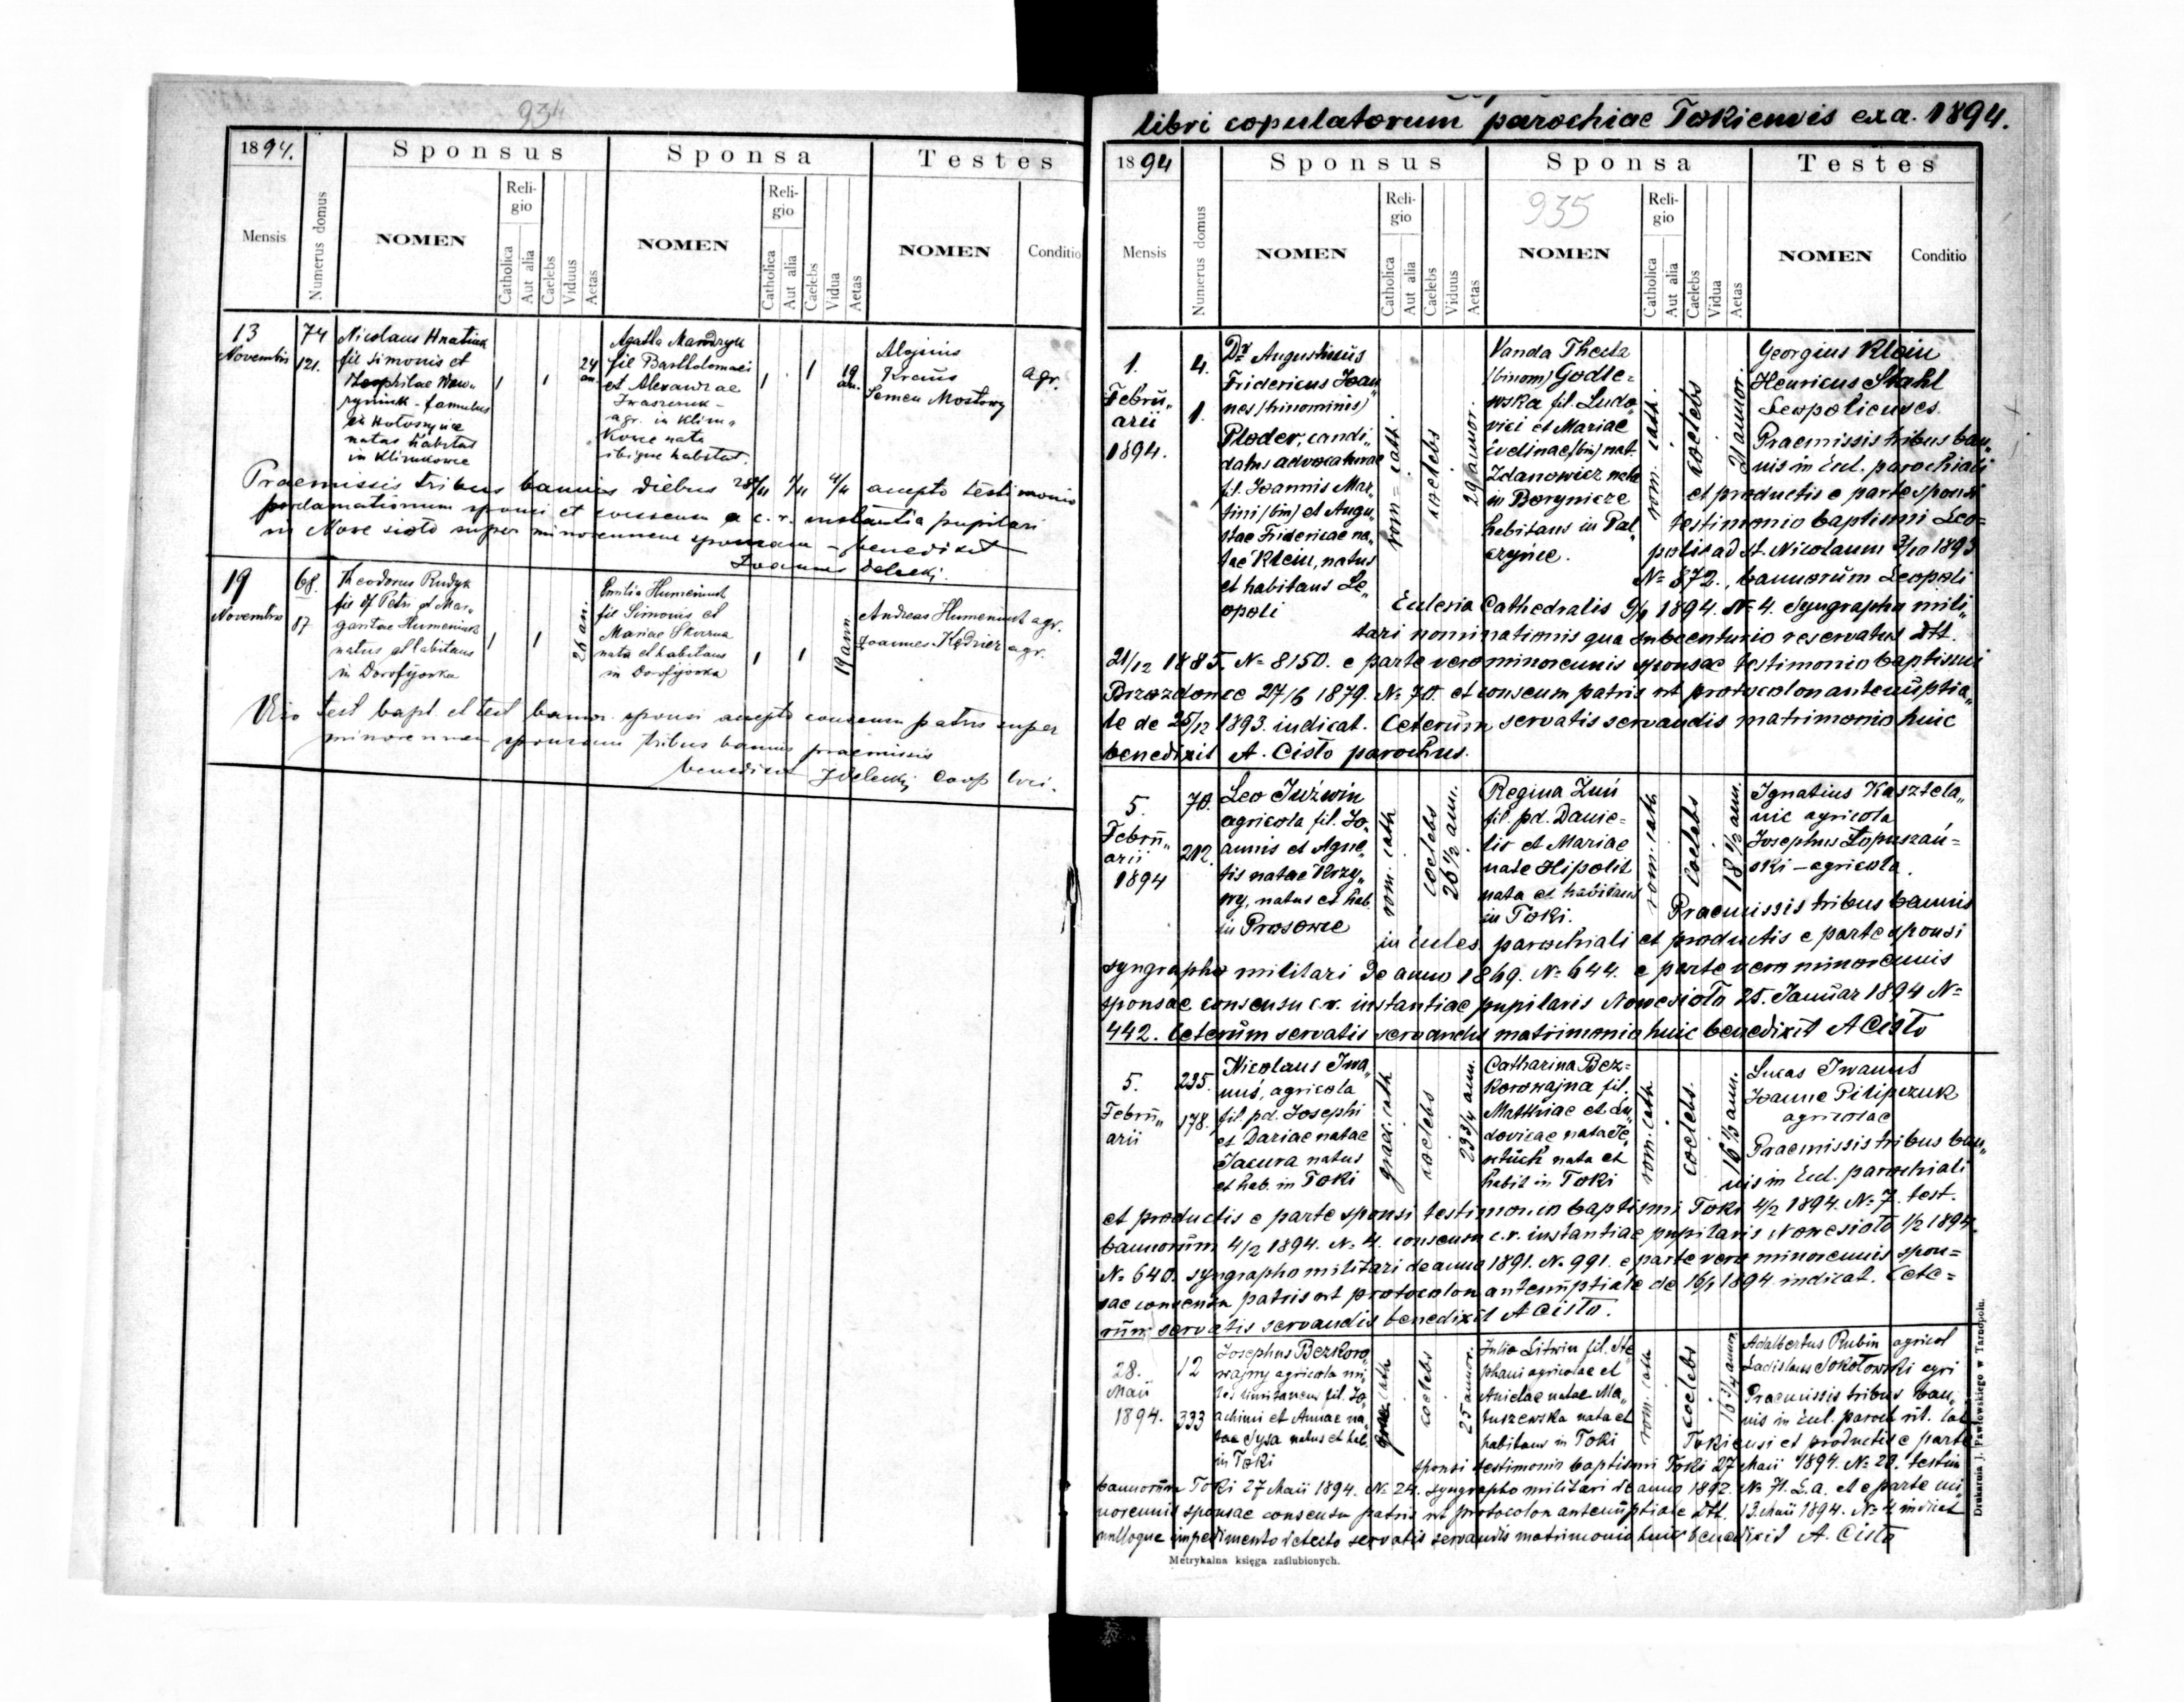 934
1894.
Sponsus
Sponsa
Testes
Mensis
Numerus domus
NOMEN
Religio
Catholica
Aut alia
Caelebs
Viduus
Aetas
NOMEN
Religio
Catholica
Aut alia
Caelebs
Vidua
Aetas
NOMEN
Conditio
13
Novembris
74
121.
Nicolaus Hnatiuk
fil Simonis et
Theophilae
famulus
in
natus habitat
in Klimkowce
1
1
24
an.
Agatha Mandryk
fil Bartholomaei
et Alexandrae
Iwaszczuk -
agr. in Klim„
kowce nata
ibique habitat.
1
1
19
an.
Alojsius
Kraus
Semen Mostowy
agr.
Praemissis tribus bannis diebus 28/ 1/11 4/11 accepto testimonio
proclamationum sponsi et consensu a c. r. instantia pupilari
in Nove sioło super minorennem sponsam - benedixit
Joannes
19
Novembris
68.
87
Theodorus Rudyk
fil Petri et Mar„
garitae Humeniuk
natus et habitans
in Dorofijowka
1
1
26 an.
Emilia Humeniuk
fil Simonis et
Mariae
nata et habitans
in Dorofijowka
1
1
19 ann
Andreas Humeniuk agr.
Joannes agr.
test bapt. et test bannor. sponsi accepto consensu patris super
minorennem sponsam tribus bannis praemissis
benedixit coop loci.
libri copulatorum parochiae Tokiensis ex a. 1894.
1894
Sponsus
Sponsa
Testes
935
Mensis
Numerus domus
NOMEN
Religio
Catholica
Aut alia
Caelebs
Viduus
Aetas
NOMEN
Religio
Catholica
Aut alia
Caelebs
Vidua
Aetas
NOMEN
Conditio
1.
Febru„
arii
1894.
4.
1.
Dr Augustinus
Fridericus Joan„
nes (trinominis)
Ploder, candi„
datus advocaturae
fil. Joannis Mar„
tini (bin) et Augu„
stae Fridericae na„
tae Klein, natus
et habitans Le„
opoli
rom= cath.
coelebs
29 annor.
Vanda Thecla
(binom) Godle=
wska fil. Ludo„
vici et Mariae
Evelinae (bin) nat.
Zdanowicz nata
in Borynicze
habitans in Pal„
czyńce.
rom. cath.
coelebs
21 annor.
Georgius Klein
Henricus Stahl
Leopolienses.
Praemissis tribus ban„
nis in Eccl. parochiali
et productis e parte sponsi
testimonio baptismi Leo=
poli ad St. Nicolaum 3/10 1893
No 872., bannorum Leopoli
Ecclesia Cathedralis 9/1 1894. No 4. Syngrapha mili„
tari nominationis qua subcenturio reservatus dtt.
21/12 1885. No 8150. e parte vero minorennis sponsae testimonio baptismi
Brzozdowce 27/6 1879. No 70. et consensum patris ut protocolon antenuptia„
le de 25/12 1893. indicat. Ceterum servatis servandis matrimonio huic
benedixit A. Cisło parochus.
5.
Febru„
arii
1894
70.
212.
Leo Juźwin
agricola fil. Jo„
annis et Agne„
tis natae Krzy„
wy, natus et hab.
in Prosowce
rom. cath
coelebs
26 1/2 ann.
Regina Zuń
fil. pd. Danie=
lis et Mariae
nate Hipolit
nata et habitans
in Toki.
rom. cath.
coelebs
18 1/2 ann.
Ignatius Kasztela„
nic agricola
Josephus Łopuszań=
ski - agricola.
Praemissis tribus bannis
in Eccles. parochiali et productis e parte sponsi
syngrapho militari de anno 1869. No 644. e parte vero minorennis
sponsae consensu c.r. instantiae pupilaris Nowesioło 25. Januar 1894 No
442. Ceterum servatis servandis matrimonio huic benedixit A Cisło
5.
Febru„
arii
235.
178.
Nicolaus Iwa„
nuś, agricola
fil. pd. Josephi
et Dariae natae
Jacura natus
et hab. in Toki
graec. cath
coelebs
23 3/4 ann.
Catharina Bez=
korowajna fil.
Matthiae et Lu„
dovicae nata
nata et
habit in Toki
rom. cath.
coelebs.
16 1/3 ann.
Lucas Iwanuś
Joanne Pilipczuk
agricolae
Praemissis tribus ban„
nis in Eccl. parochiali
et productis e parte sponsi testimonio baptismi Toki 4/2 1894. No 7. test.
bannorum 4/2 1894. No 4. consensu c.r. instantiae pupilaris Nowesioło 1/2 1894.
No 640. syngrapho militari de anno 1891. No 991. e parte vero minorennis spon=
sae consensu patris ut protocolon antenuptiale de 16/1 1894 indicat. Cete=
rum servatis servandis benedixit A Cisło.
28.
Maii
1894.
12
333
Josephus Bezkoro„
wajny agricola mi„
les fil. Jo„
achimi et Annae na„
tae Sysa natus et hab.
in Toki
graec cath
coelebs
25 annor.
Julia Litwin fil. Ste„
phani agricolae et
Anielae natae Ma„
tuszewska nata et
habitans in Toki
rom. cath
coelebs
16 3/4 annor
Adalbertus Rubin agricol
Ladislaus Sokołowski agri
Praemissis tribus ban„
nis in Eccl. paroch rit. lat
Tokiensi et productis e parte
sponsi testimonio baptismi Toki 27 Maii 1894. No 28. testim
bannorum Toki 27 Maii 1894. No 24. syngrapho militari de anno 1892. No 71. L.a. et e parte mi„
norennis sponsae consensu patris ut protocolon antenuptiale dtt. 13. Maii 1894. No 4 indicat
nulloque impedimento detecto servatis servandis matrimonio huic benedixit A. Cisło
Metrykalna księga zaślubionych.
Drukarnia J. Pawłowskiego w Tarnopolu.